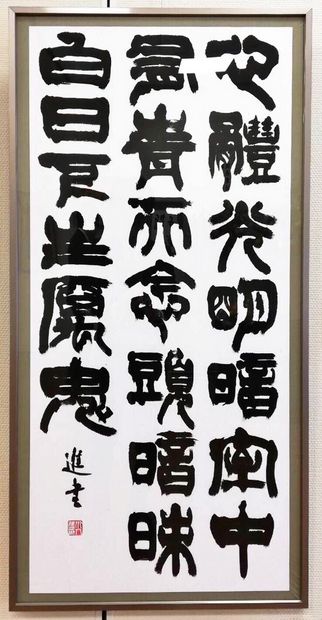 心體光明暗室中
有青天念頭暗昧
白日下生厲鬼
進書